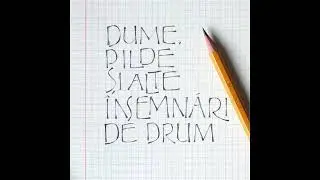 DUME,
PILDE
ȘI ALTE
ÎNSEMNĂRI
DE DRUM